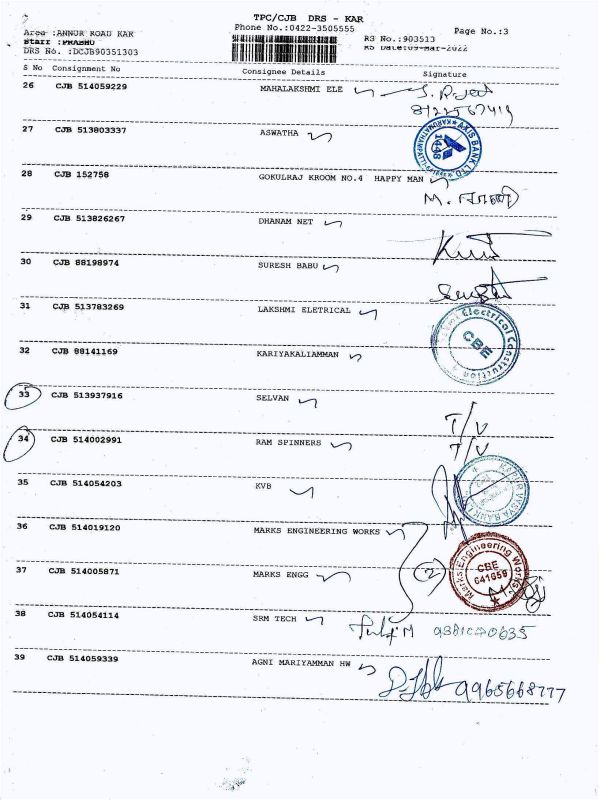 TPC/CJB DRS - KAR
Phone No.:0422-3505555
Page No.:3
Area :ANNUR ROAD KAR
RS No.:903513
Staff :PRABHU
RS Date:09-Mar-2022
DRS No. :DCJB90351303
S No Consignment No Consignee Details Signature
26 CJB 514059229 MAHALAKSHMI ELE
8122567419
27 CJB 513803337 ASWATHA
AXIS BANK LTD
1448
28 CJB 152758 GOKULRAJ KROOM NO.4 HAPPY MAN
29 CJB 513826267 DHANAM NET
30 CJB 88198974 SURESH BABU
31 CJB 513783269 LAKSHMI ELETRICAL
Electrical Construction
CBE
32 CJB 88141169 KARIYAKALIAMMAN
33 CJB 513937916 SELVAN
T/V
34 CJB 514002991 RAM SPINNERS
T/V
35 CJB 514054203 KVB
36 CJB 514019120 MARKS ENGINEERING WORKS
Marks Engineering Works
CBE
641659
37 CJB 514005871 MARKS ENGG
2
38 CJB 514054114 SRM TECH
39 CJB 514059339 AGNI MARIYAMMAN HW
9965668777